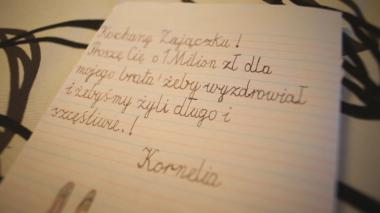 Kochany Zajączku!
Proszę Cię o 1 Milion zł dla
mojego brata żeby wyzdrowiał
i żebyśmy żyli długo i
szczęśliwie.!
Kornelia